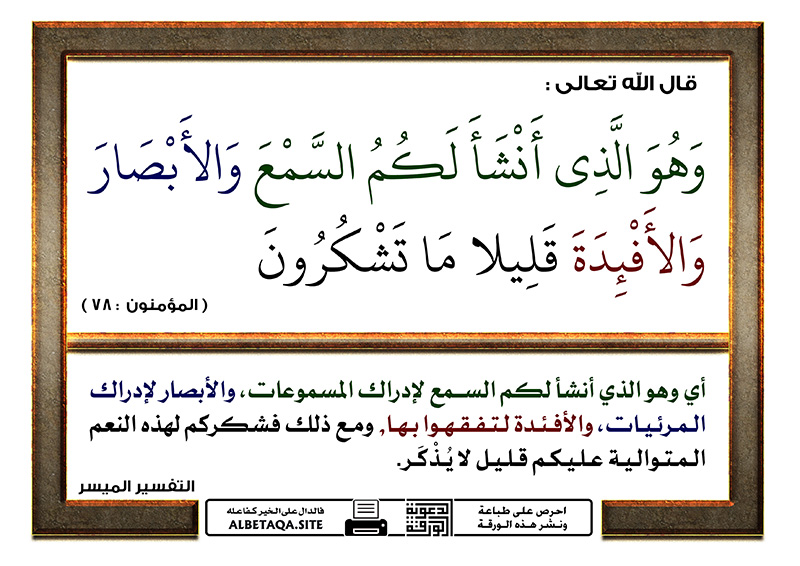 قال الله تعالى :
وَهُوَ الَّذِى أَنْشَأَ لَكُمُ السَّمْعَ وَالأَبْصَارَ
وَالأَفْئِدَةَ قَلِيلا مَا تَشْكُرُونَ
( المؤمنون : ٧٨ )
أي وهو الذي أنشأ لكم السـمع لإدراك المسموعات، والأبصار لإدراك
المـرئيات، والأفئدة لتـفقهـوا بهـا, ومع ذلك فشكركم لهذه النعم
المتوالية عليكم قليل لا يُذْكَر.
التفسير الميسر
احرص على طباعة
ونشر هذه الورقة
الورقة
الدعوية
فالدال على الخير كفاعله
ALBETAQA.SITE